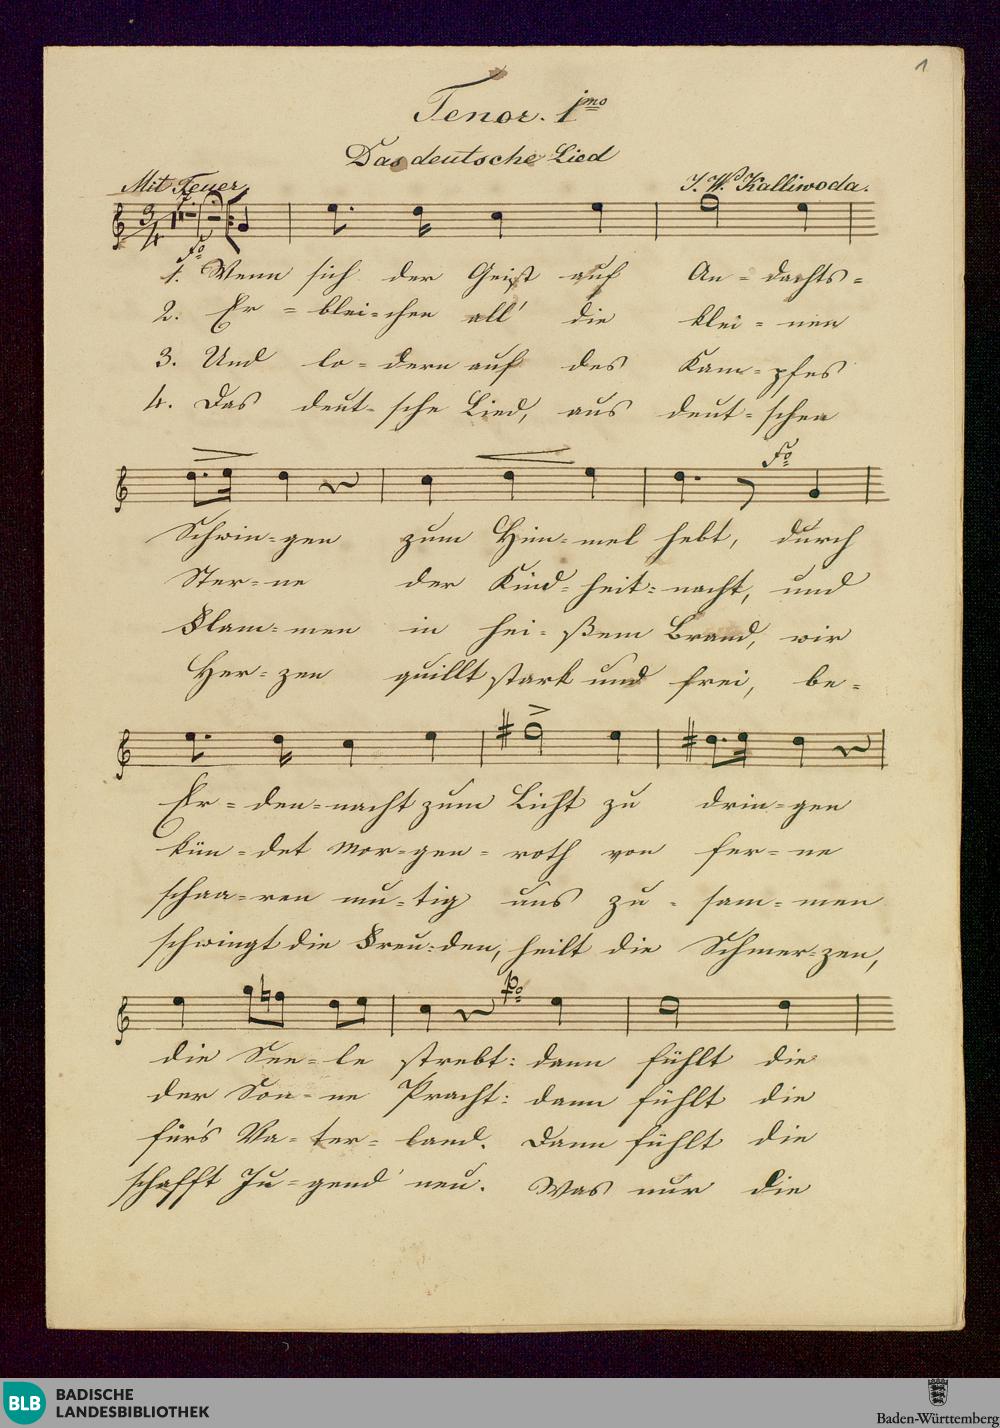 1
Tenor. 1mo
Das deutsche Lied
Mit Feuer.
J. W. Kalliwoda.
3/4
Fo
1. Wenn sich der Geist auf An-dachts-
2. Er-blei-chen all' die klei-nen
3. Und lo-dern auf des Kam-pfes
4. Das deut-sche Lied, aus deut-schen
Fo
Schwin-gen zum Him-mel hebt, durch
Ster-ne der Kind-heit-nacht, und
Flam-men in hei-ßem Brand, wir
Her-zen quillt stark und frei, be-
Er-den-nacht zum Licht zu drin-gen
kün-det Mor-gen-roth von fer-ne
schaa-ren mu-tig uns zu-sam-men
schwingt die Freu-den, heilt die Schmer-zen,
po
die See-le strebt: dann fühlt die
der Son-ne Pracht: dann fühlt die
für's Va-ter-land. Dann fühlt die
schafft Ju-gend neu. Was nur die
BLB BADISCHE
LANDESBIBLIOTHEK
Baden-Württemberg